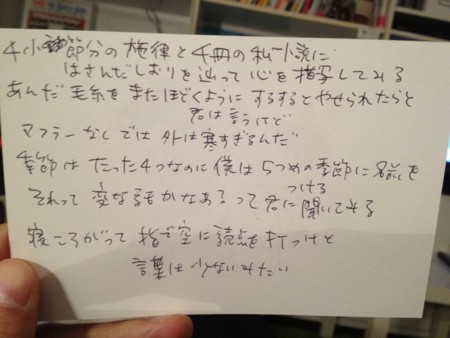 4小節分の旋律と4冊の私小説に
はさんだしおりを辿って心を描写してみる
あんだ毛糸をまたほどくようにするするとやせられたらと
君は言うけど
マフラーなしでは外は寒すぎるんだ
季節はたった4つなのに僕は5つめの季節に名前を
つける
それって変な話かなあ?って君に聞いてみる
寝ころがって指で空に読点を打つけど
言葉は少ないみたい